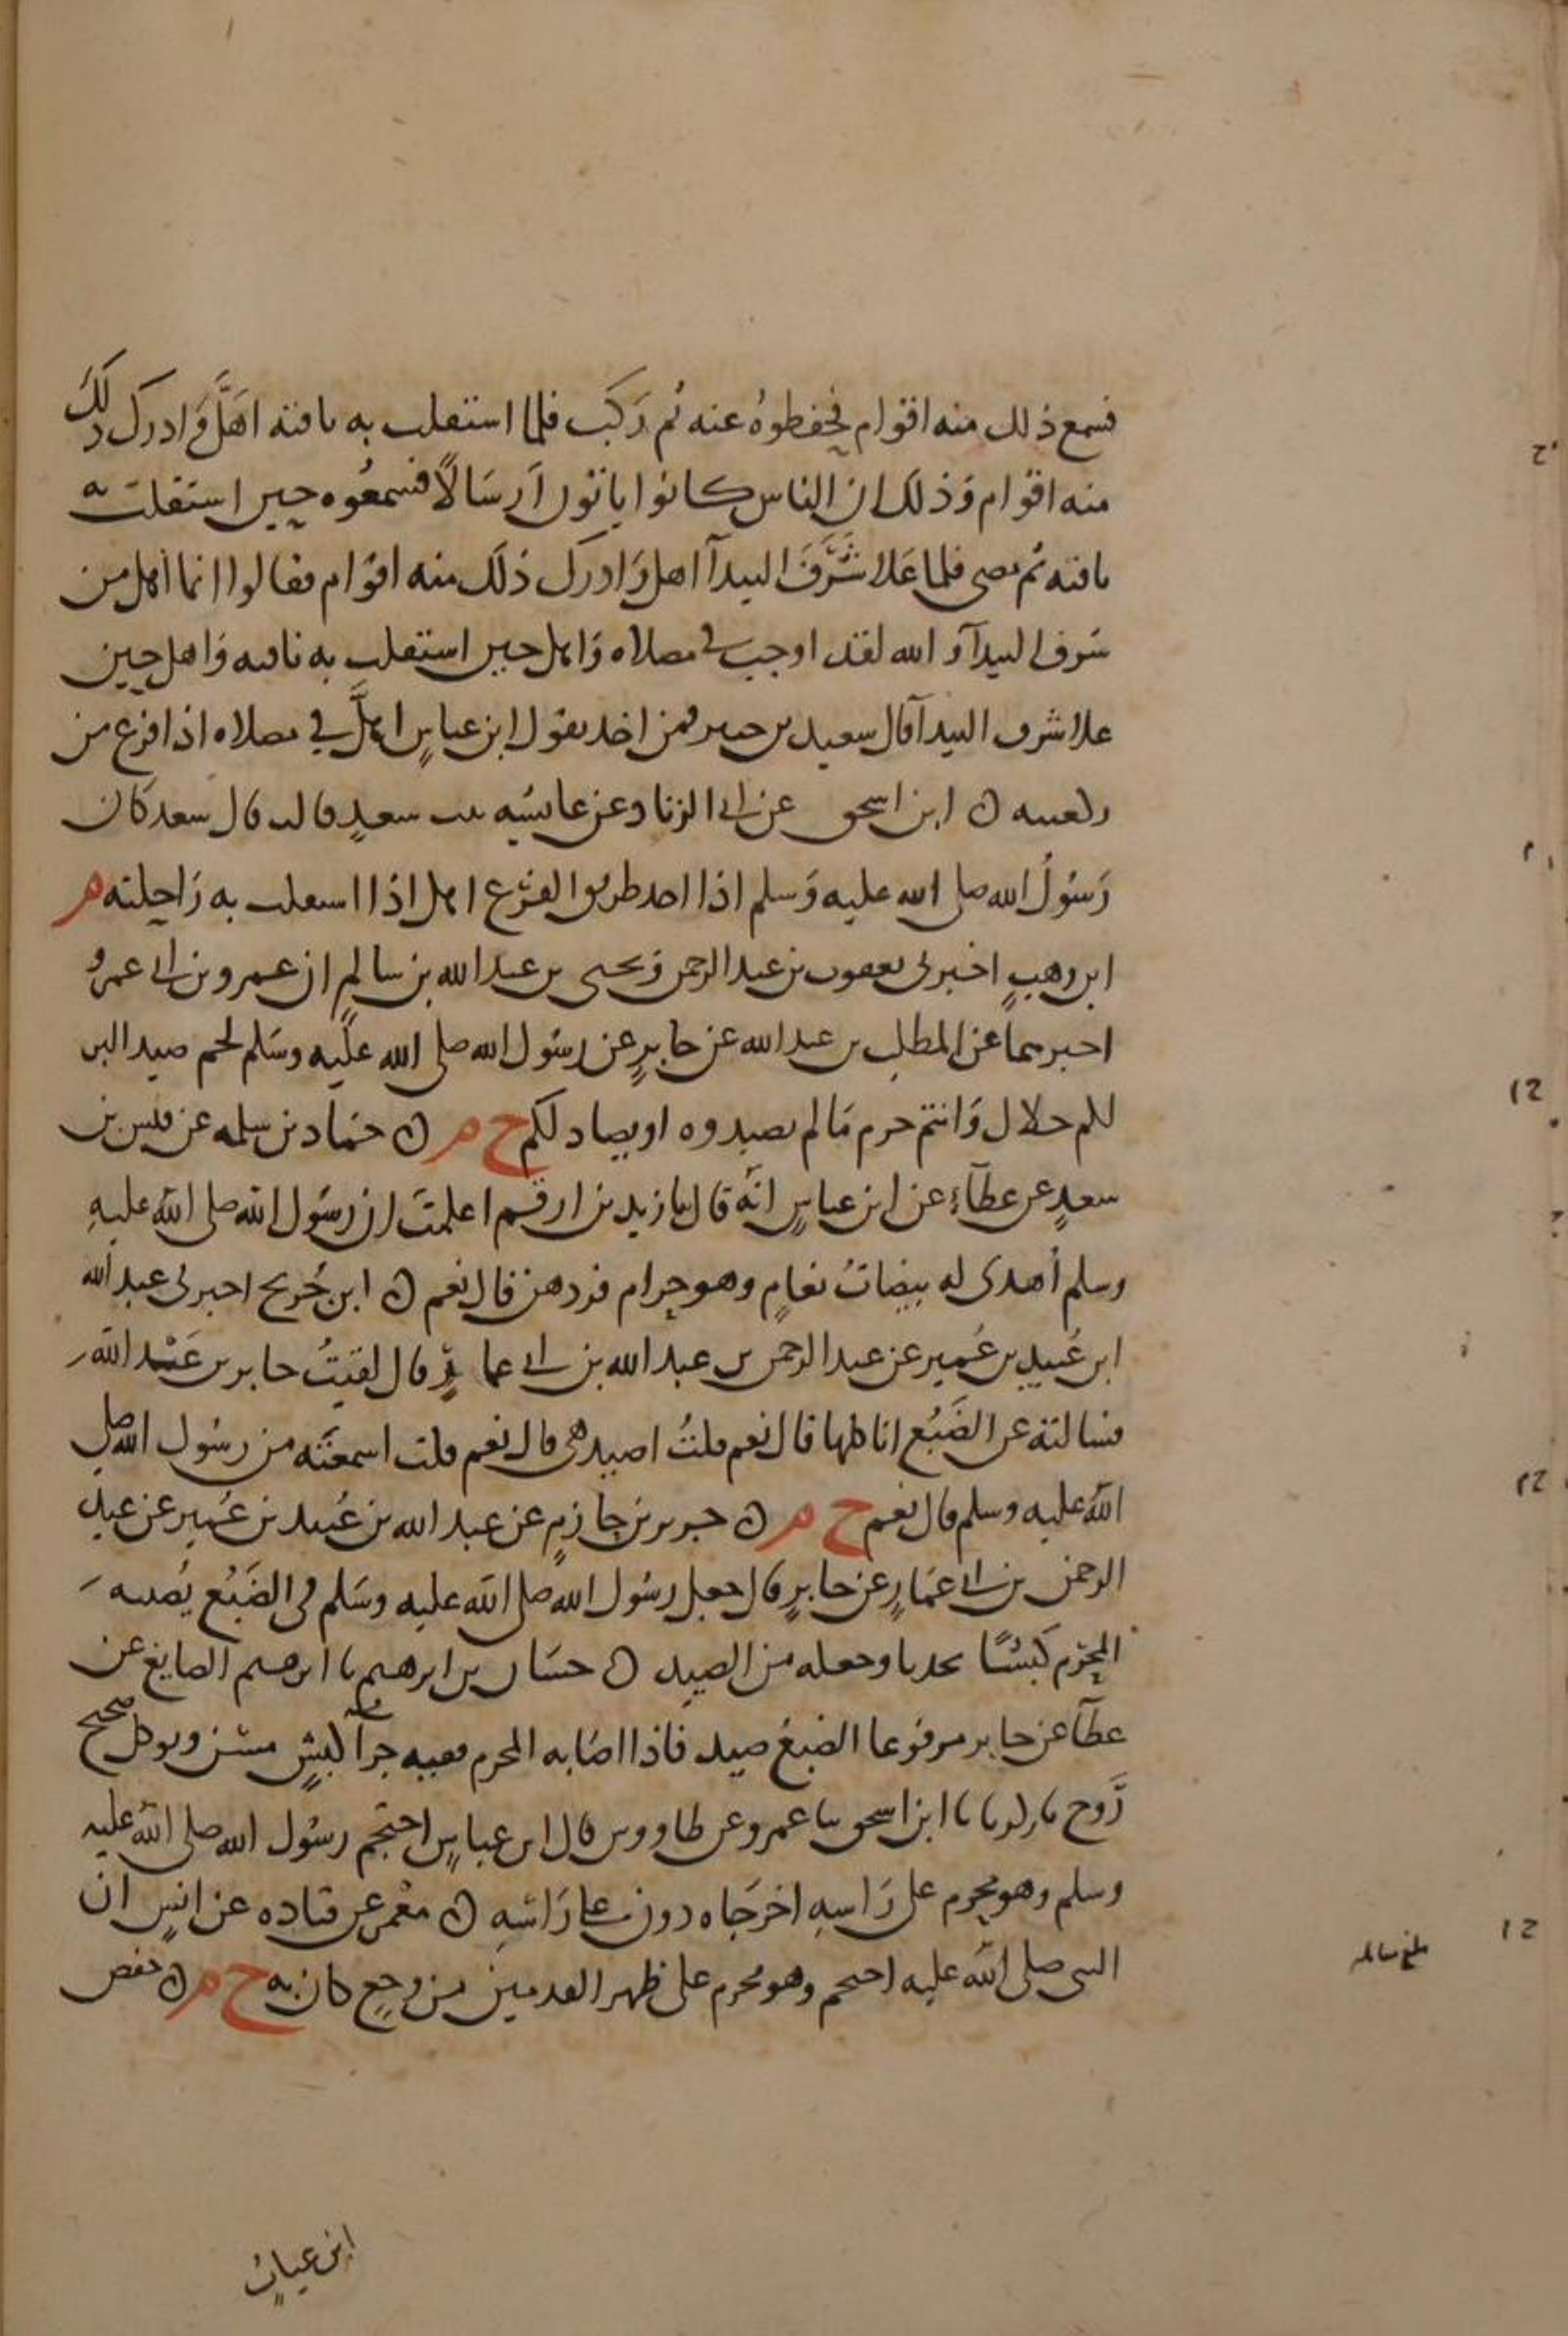 فسمع ذلك منه اقوام فحفظوه عنه ثم ركب فلما استقلت به ناقته اهلّ وادرك ذلك
منه اقوام وذلك ان الناس كانوا ياتون ارسالا فسمعوه حين استقلت به
ناقته ثم مضى فلما علا شرف البيدآ اهل وادرك ذلك منه اقوام فقالوا انما اهل من
شرف البيدآ و الله لقد اوجب في مصلاه واهل حين استقلت به ناقته واهل حين
علا شرف البيدآ قال سعيد بن جبير فمن اخذ بقول ابن عباسٍ اهلّ في مصلاه اذا فرغ من
ركعتيه ن ابن اسحق عن ابي الزناد عن عائشه بنت سعدٍ قالت قال سعد كان
رسُولُ الله صلى الله عليه وسلم اذا اخذ طريق الفرع اهل اذا استقلت به راحلته م
ابن وهبٍ اخبرني يعقوب بن عبد الرحمن ويحيى بن عبد الله بن سالمٍ ان عمرو بن ابي عمرو
اخبرهما عن المطلب بن عبد الله عن جابرٍ عن رسُول الله صلى الله عليه وسَلم لحم صيد البر
لكم حلال وانتم حرم مَا لم تصيدوه او يصاد لكم خ م ن حمَاد بن سلمه عن قيس بن
سعدٍ عن عطآءٍ عن ابن عباسٍ انّه قال يا زيد بن ارقم اعلمتَ ان رسُول الله صلى الله عليهِ
وسلم أهدى له بيضاتُ نعامٍ وهو حرام فردهن قال نعم ن ابن جُريج اخبرني عبد الله
ابن عُبيد بن عُمير عن عبد الرحمن بن عبد الله بن ابي عمارٍ قال لقيتُ جابر بن عَبْد الله
فسالته عن الضَبُع اناكلها قال نعم قلتُ اصيد هى قال نعم قلت اسمعتَه من رسُول الله صلى
الله عليه وسلم قال نعم خ م ن جرير بن حازمٍ عن عبد الله بن عُبيد بن عُمير عن عبد
الرحمن بن ابي عمَارٍ عن جابرٍ قال جعل رسُول الله صلى الله عليه وسَلم فى الضَبُع يُصيبه
المحرم كبشًا نجديا وجعله من الصيدِ ن حسَان بن ابرهيم نا ابرهيم الصايغ عن
عطآ عن جابر مرفوعا الضبعُ صيد فاذا اصَابه المحرم ففيه جزآ كبشٍ مسن ويوكل صحيح
رَوح نا زكريا نا ابن اسحق نا عمرو عن طاووس قال ابن عباسٍ احتجم رسُول الله صلى الله عليه
وسلم وهو محرم على رَاسهِ اخرجَاه دون على رَاسهِ ن معْمر عن قتاده عن انسٍ ان
النبى صلى الله عليه احتجم وهو محرم على ظهر القدمين من وجعٍ كان به خ م ن حفص
ابن غياثٍ